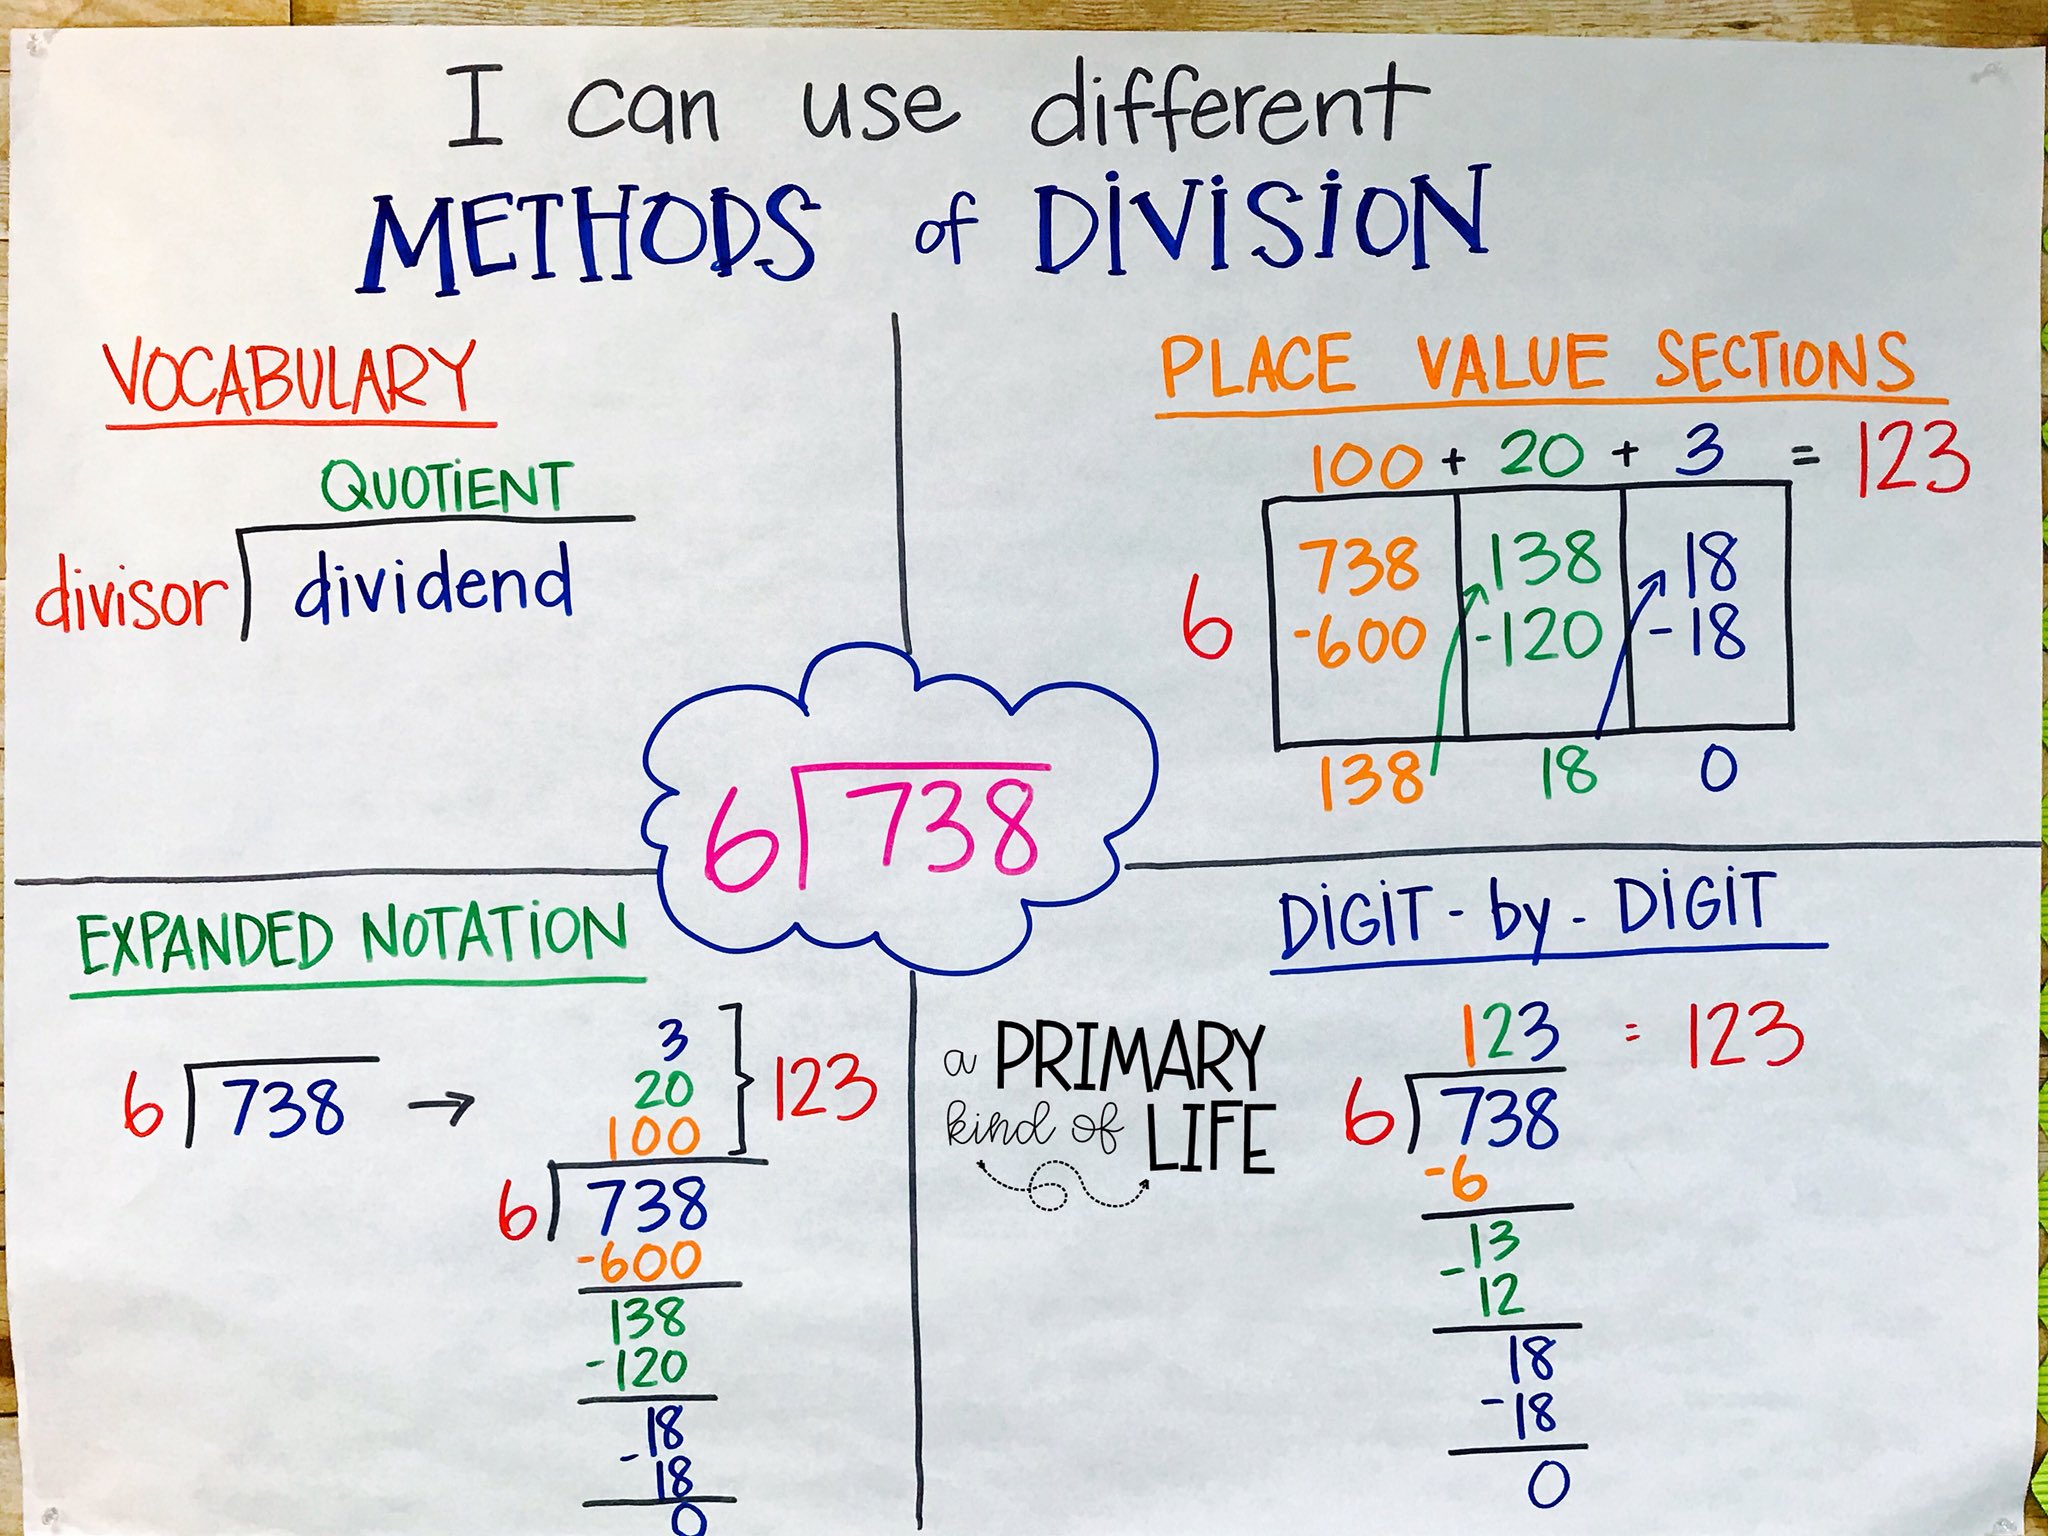 I can use different
METHODS of DIVISION
VOCABULARY
QUOTIENT
divisor dividend
PLACE VALUE SECTIONS
100 + 20 + 3 = 123
738 138 18
6 -600 -120 -18
138 18 0
6 738
EXPANDED NOTATION
6 738 →
3
20
100
} 123
6 738
-600
138
-120
18
-18
0
a PRIMARY
kind of LIFE
DIGIT - by - DIGIT
123 = 123
6 738
-6
13
-12
18
-18
0